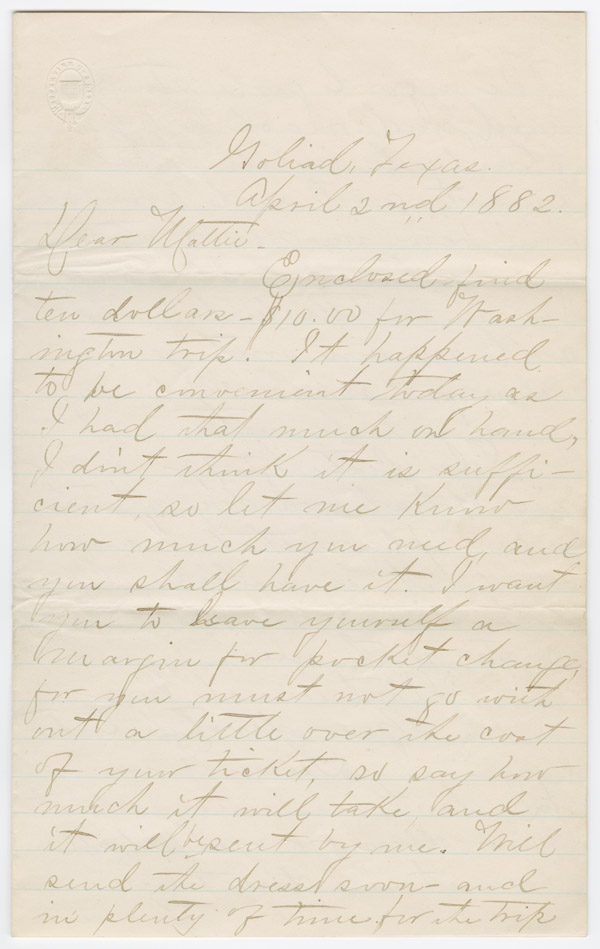 Goliad, Texas.
April 2nd 1882.
Dear Mattie -
Enclosed find
ten dollars - $10.00 for Wash-
ington trip. It happened
to be convenient today as
I had that much on hand,
I dont think it is suffi-
cient, so let me know
how much you need, and
you shall have it. I want
you to leave yourself a
margin for pocket change,
for you must not go with
out a little over the cost
of your ticket, so say how
much it will take, and
it will be sent by me. Will
send the dress soon - and
in plenty of time for the trip